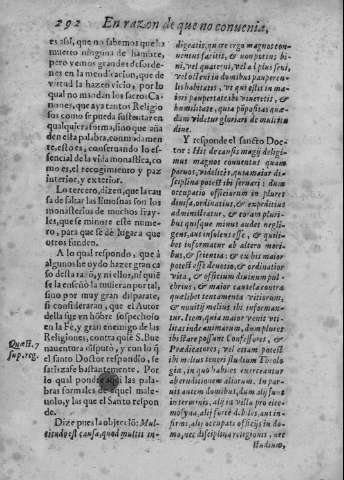 292 En razon de que no conuenia,
es assi, que no sabemos que ha
muerto ninguna de hambre,
pero vemos grandes desorde-
nes en la mendicacion, que de
virtud la hazen vicio, por lo
qual no mandan los sacros Ca-
nones, que aya tantos Religio
sos como se pueda sustentar en
qualquiera forma, sino que aña
den esta palabra, commodamen
te, esto es, conseruando lo es-
sencial de la vida monastica, co
mo es, el recogimiento y paz
interior, y exterior.
Lo tercero, dizen, que la cau
sa de faltar las limosnas son los
monasterios de muchos fray-
les, que se minore este nume-
ro, para que se dè lugar a que
otros funden.
A lo qual respondo, que à
algunos he oydo hazer gran ca
so desta razõ, y ni ellos, ni quiẽ
se la enseñò la mujeran por tal,
sino por muy gran disparate,
si consideraran, que el Autor
della fue vn hõbre sospechoso
en la Fè, y gran enemigo de las
Religiones, contra quiẽ S. Bue
nauentura disputò, y con lo q̃
el santo Doctor respondio, se
satisfaze bastantemente. Por
lo qual pondrè aqui las pala-
bras formales de aquel male-
uolo, y las que el Santo respon
de.
Dize pues la objeciõ: Mul-
titudo est causa, quod multis in-
Quæst. 7
sup. reg.
digeatis, quare ergo magnos con-
uentus facitis, & non potius bi-
ni, vel quaterni, vel à plus seni,
vel octeni in domibus paupercu-
lis habitatis, ut qui estis in ma-
iori paupertate ibi viueretis, &
humilitate, quia põpositas quæ-
dam videtur gloriari de multitu
dine.
Y responde el sancto Doc-
tor: Hic de causis magis deligi-
mus magnos conuentus quam
paruos, videlicet, quia maior di-
sciplina potest ibi seruari: dum
occupatio officiorum in plures
diuisa, ordinatius, & expeditius
administratur, & coram pluri-
bus quisque minus audet negli-
gens, aut insolens esse, & quili-
bet informatur ab altero mori-
bus, & scientia: & ex his maior
potest esse deuotio, & ordinatior
vita, & officium diuinum pul-
chrius, & maior cautela contra
qualibet tentamenta vitiorum,
& mutuo melius ibi informan-
tur. Item, quia maior venit vti-
litas inde animarum, dum plures
ibi stare possunt Confessores, &
Prædicatores; vel etiam potest
ibi melius teneri studium Theolo
gia, in quo habiles exerceantur
ab eruditionem aliorum. In par-
uis autem domibus, alij sunt fre-
in terminis, alij in villa pro ele-
mosyna, alij forte debiles, aut in-
firmi, alij occupati officijs in do-
mo, nec disciplina religionis, nec
studium,